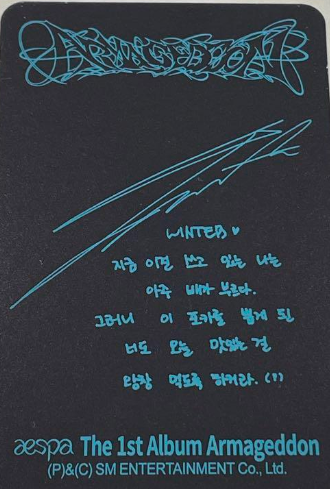 ARMAGEDDON
WINTER♥
지금 이걸 쓰고 있는 나는
아주 배가 부르다.
그러니 이 포카를 뽑게 된
너도 오늘 맛있는 걸
왕창 먹도록 하거라. (!!)
aespa The 1st Album Armageddon
(P)&(C) SM ENTERTAINMENT Co., Ltd.